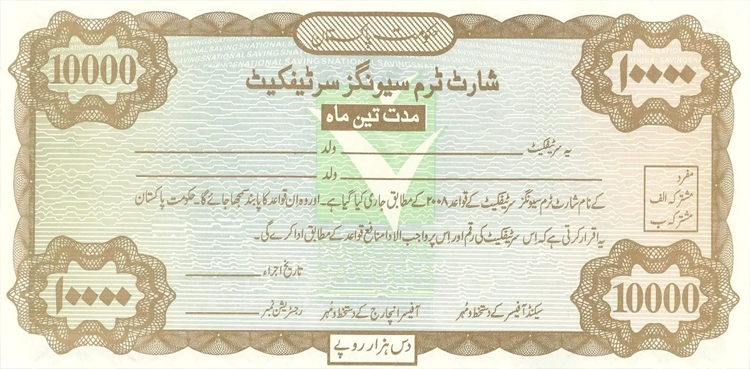 حکومت پاکستان
SAVINGS NATIONAL SAVINGS NATIONAL SAVINGS
10000
۱۰۰۰۰
شارٹ ٹرم سیونگز سرٹیفکیٹ
مدت تین ماہ
یہ سرٹیفکیٹ ولد
ولد
مفرد
مشترکہ الف
مشترکہ ب
کے نام شارٹ ٹرم سیونگز سرٹیفکیٹ کے قواعد ۲۰۰۸ کے مطابق جاری کیا گیا ہے۔ اور وہ ان قواعد کا پابند سمجھا جائے گا۔ حکومت پاکستان
یہ اقرار کرتی ہے کہ اس سرٹیفکیٹ کی رقم اور اس پر واجب الادا منافع قواعد کے مطابق ادا کرے گی۔
تاریخ اجراء
۱۰۰۰۰
10000
سیکنڈ آفیسر کے دستخط و مُہر آفیسر انچارج کے دستخط و مُہر رجسٹریشن نمبر
دس ہزار روپے